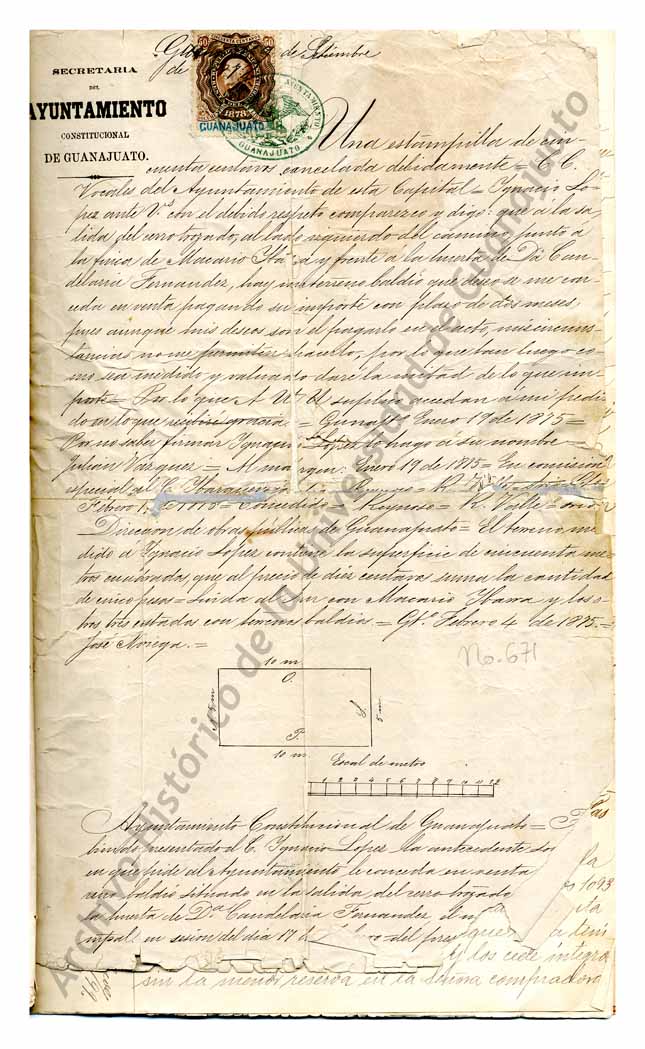 SECRETARIA
DEL
AYUNTAMIENTO
CONSTITUCIONAL
DE GUANAJUATO.
de Setiembre
de
50
50
1878
GUANAJUATO
AYUNTAMIENTO
GUANAJUATO
Una estampilla de cin-
cuenta centavos cancelada debidamente = C. C.
Vocales del Ayuntamiento de esta Capital = Ygnacio Ló-
pez ante V.s con el debido respeto comparezco y digo: que á la sa-
lida del cerro trozado, al lado izquierdo del camino junto a
la finca de Macario y frente a la huerta de Dª Can-
delaria Fernandez, hay un terreno baldio que deseo se me con-
ceda en venta pagando su importe con plazo de dos meses
pues aunque mis deseos son el pagarlo en el acto, mis circuns-
tancias no me permiten hacerlo, por lo que tan luego co-
mo sea medido y valuado daré la mitad de lo que im-
porte = Por lo que A U. suplico accedan á mi pedi-
do en lo que recibiré gracia = Guanajto Enero 19 de 1875 =
Por no saber firmar Ignacio Lopez lo hago á su nombre =
Julian Vazquez = Al margen. Enero 19 de 1875 = En comision
especial al C.
Febrero = Concedido = Reynoso = R. Valle =
Direccion de obras públicas de Guanajuato = El terreno me-
dido á Ygnacio López contiene la superficie de cincuenta me-
tros cuadrados, que al precio de diez centavos suma la cantidad
de cinco pesos = Linda al Sur con Macario Ybarra y los o-
tros tres costados con terrenos baldios = Gto. Febrero 4 de 1875. =
José Noriega. =
No. 671
10 m.
O.
5 m
S.
5 m.
P.
10 m.
Escal de metro
1 2 3 4 5 6 7 8 9 10 11 12
Ayuntamiento Constitucional de Guanajuato =
biendo presentado el C. Ygnacio Lopez la antecedente
en que pide al Ayuntamiento le conceda en venta
baldio situado en la salida del cerro trozado
la huerta de Dª Candelaria Fernandez, el
cipal en sesion del dia 17 de del
1093
y los cede integra
sin la menor reserva en la suma compradora
Archivo Histórico de la Universidad de Guanajuato